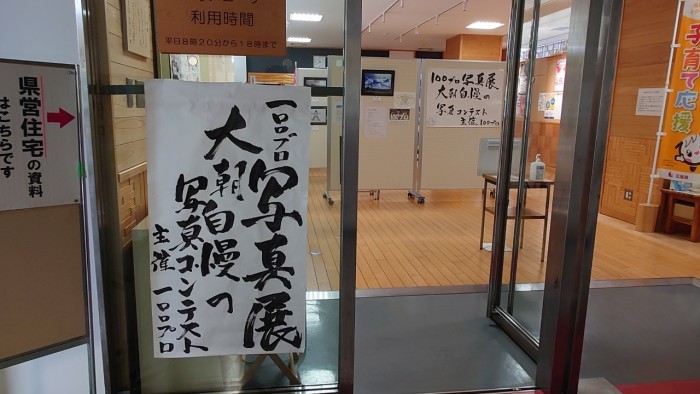 利用時間
平日8時20分から18時まで
県営住宅の資料
はこちらです
一〇〇プロ写真展
大朝自慢の
写真コンテスト
主催 一〇〇プロ
100プロ写真展
大朝自慢の
写真コンテスト
主催 100プロ
子育て応援